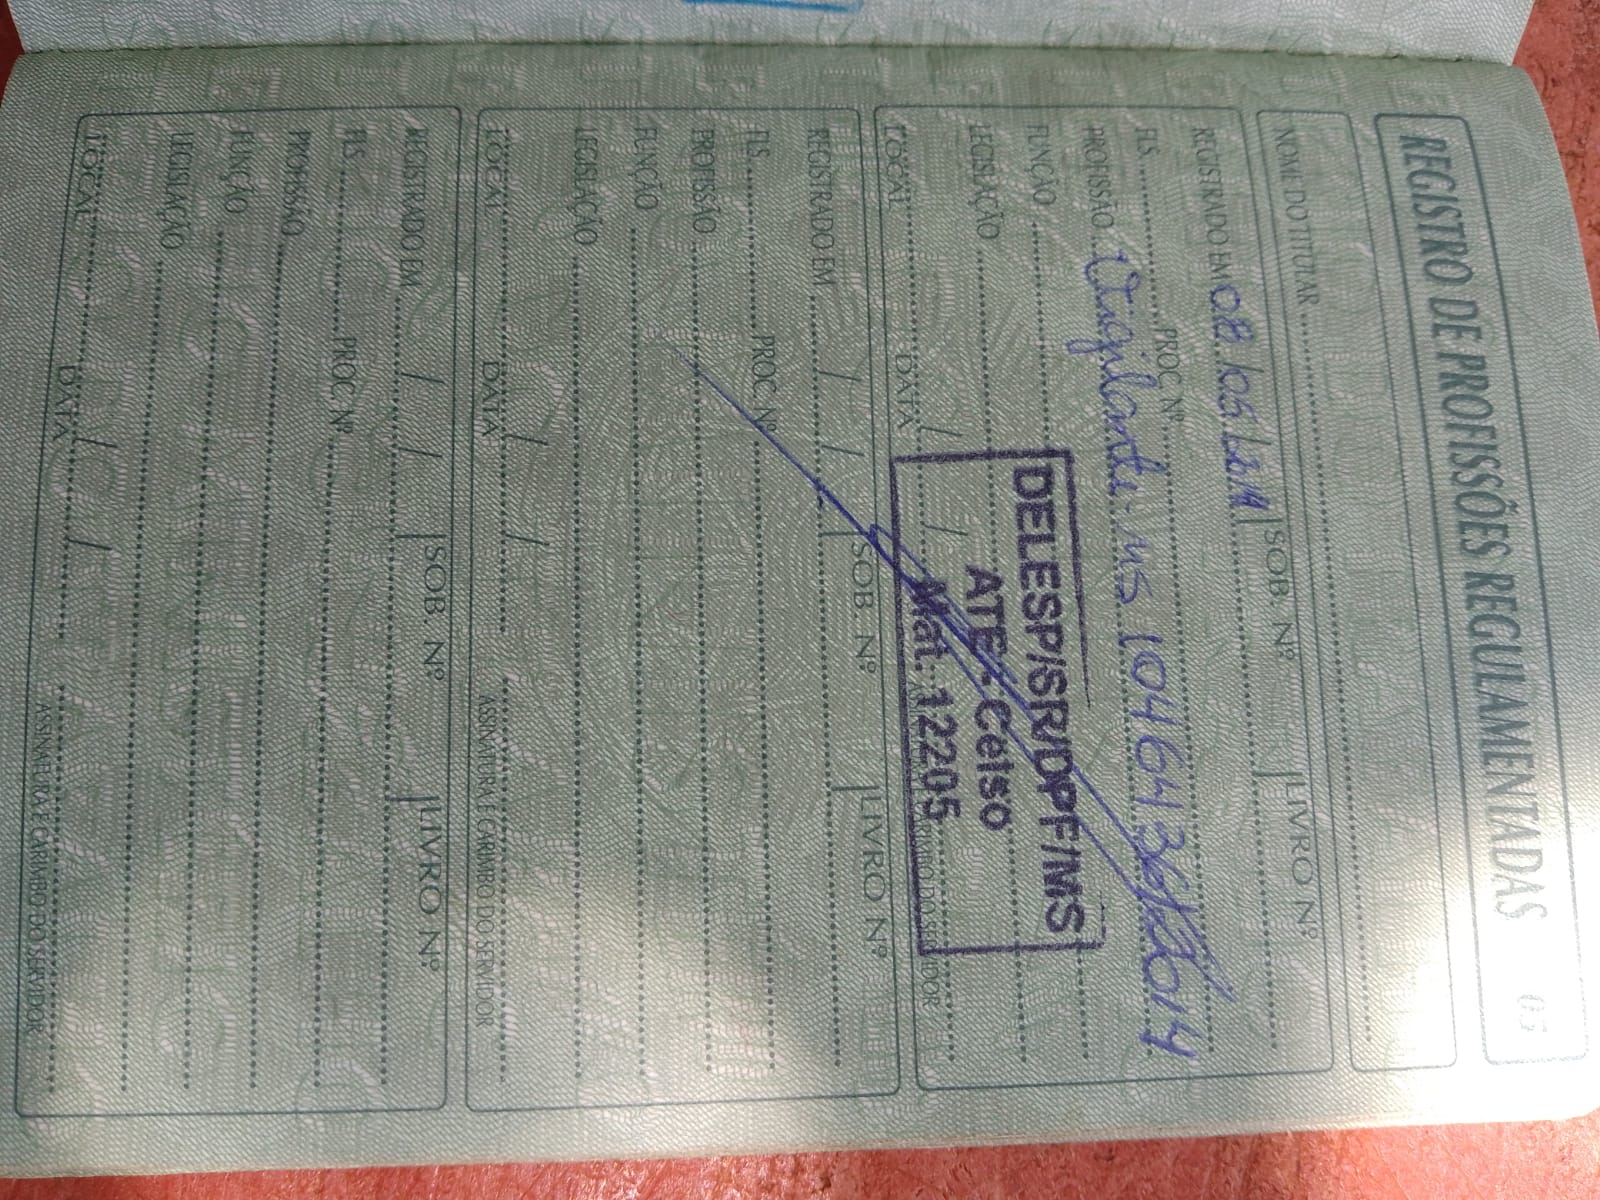 REGISTRO DE PROFISSÕES REGULAMENTADAS 03
NOME DO TITULAR
REGISTRADO EM 08/05/2014 SOB. Nº LIVRO Nº
FLS. PROC Nº
PROFISSÃO Vigilante - MS
FUNÇÃO
LEGISLAÇÃO
LOCAL DATA / / ASSINATURA E CARIMBO DO SERVIDOR
DELESP/SR/DPF/MS
ATE: Celso
Mat. 12205
REGISTRADO EM / / SOB. Nº LIVRO Nº
FLS. PROC Nº
PROFISSÃO
FUNÇÃO
LEGISLAÇÃO
LOCAL DATA / / ASSINATURA E CARIMBO DO SERVIDOR
REGISTRADO EM / / SOB. Nº LIVRO Nº
FLS. PROC Nº
PROFISSÃO
FUNÇÃO
LEGISLAÇÃO
LOCAL DATA / / ASSINATURA E CARIMBO DO SERVIDOR